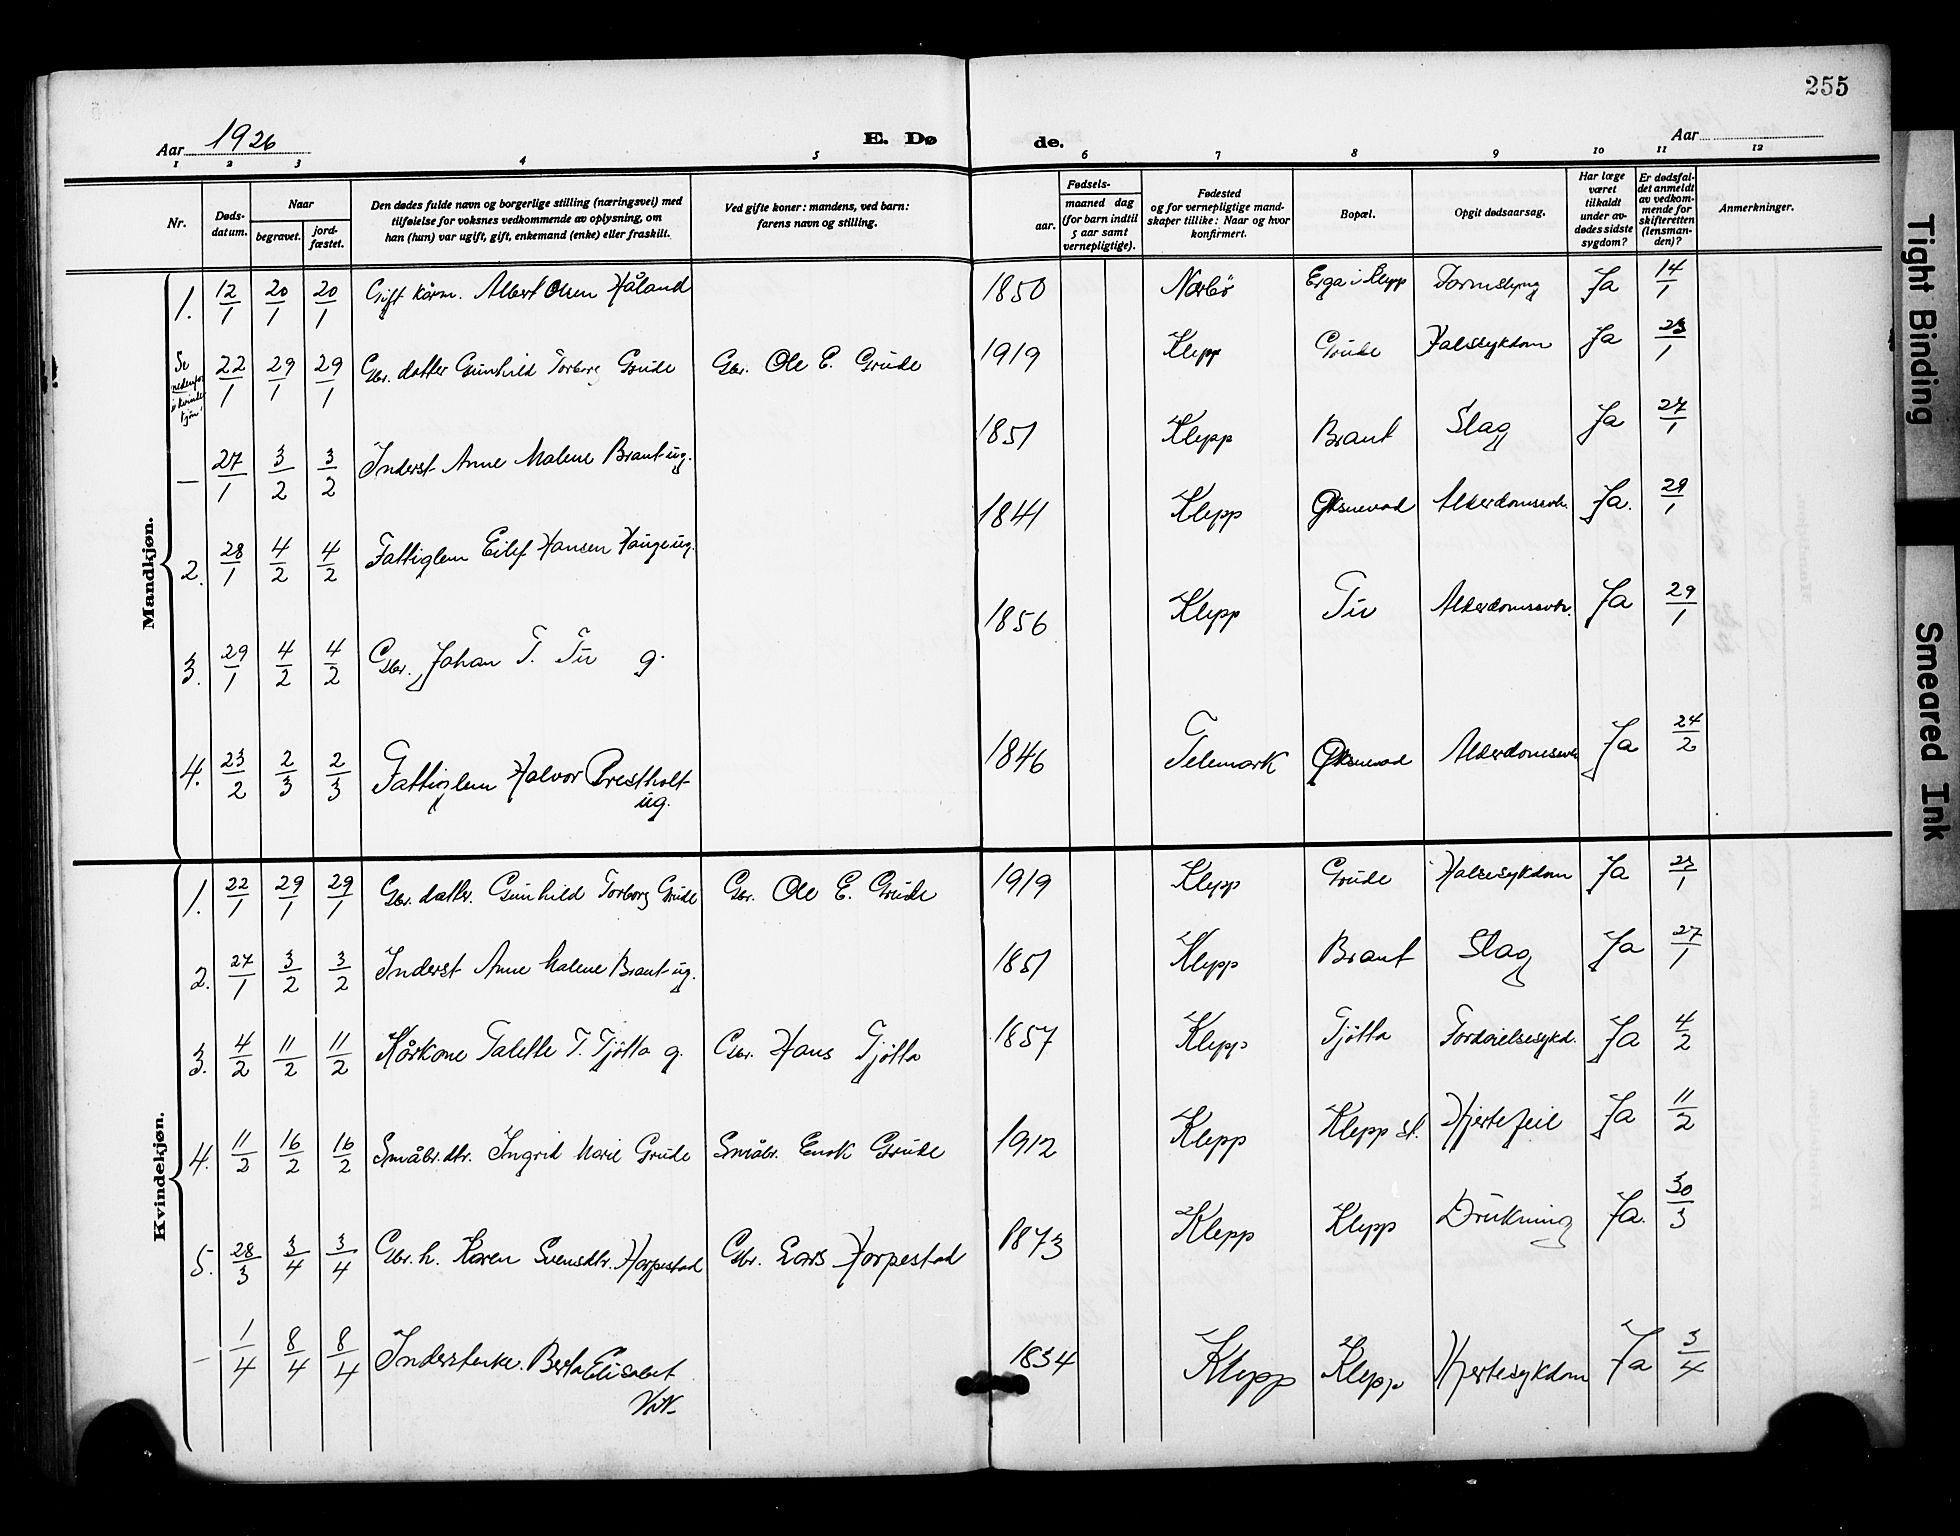 255
Aar 1926
E. Dø
de.
Aar
1 2 3 4 5 6 7 8 9 10 11 12
Nr.
Døds-
datum.
Naar
begravet.
jord-
fæstet.
Den dødes fulde navn og borgerlige stilling (næringsvei) med
tilføielse for voksnes vedkommende av oplysning, om
han (hun) var ugift, gift, enkemand (enke) eller fraskilt.
Ved gifte koner: mandens, ved barn:
farens navn og stilling.
aar.
Fødsels-
maaned dag
(for barn indtil
5 aar samt
vernepligtige).
Fødested
og for vernepligtige mand-
skaper tillike: Naar og hvor
konfirmert.
Bopæl.
Opgit dødsaarsag.
Har læge
været
tilkaldt
under av-
dødes sidste
sygdom?
Er dødsfal-
det anmeldt
av vedkom-
mende for
skifteretten
(lensman-
den)?
Anmerkninger.
Mandkjøn.
1. 12/1 20/1 20/1 Gift kårm. Albert Olsen Håland 1850 Nærbø Erga i Klepp Tarmslyng Ja 14/1
Se nedenfor i kvinde kjøn! 22/1 29/1 29/1 Gbr. datter Gunhild Torborg Grude Gbr. Ole E. Grude 1919 Klepp Grude Halssykdom Ja 23/1
— 27/1 3/2 3/2 Inderst Anne Malene Braut ug. 1851 Klepp Braut Slag Ja 27/1
2. 28/1 4/2 4/2 Fattiglem Eilef Hansen Hauge ug. 1841 Klepp Øksnevad Alderdomssvk. Ja. 29/1
3. 29/1 4/2 4/2 Gbr. Johan T. Tu g. 1856 Klepp Tu Alderdomssvk. Ja 29/1
4. 23/2 2/3 2/3 Fattiglem Halvor Prestholt ug. 1846 Telemark Øksnevad Alderdomssvk Ja 24/2
Kvindekjøn.
1. 22/1 29/1 29/1 Gbr. datter. Gunhild Torborg Grude Gbr. Ole E. Grude 1919 Klepp Grude Halsesykdom Ja 23/1
2. 27/1 3/2 3/2 Inderst Anne Malene Braut ug. 1851 Klepp Braut Slag Ja 27/1
3. 4/2 11/2 11/2 Kårkone Talette T. Tjötta g. Gbr. Hans Tjötta 1857 Klepp Tjötta Fordøielsesykd. Ja 4/2
4. 11/2 16/2 16/2 Småbr. dtr. Ingrid Marie Grude Småbr. Enok Grude 1912 Klepp Klepp st. Hjertefeil Ja 11/2
5. 28/3 3/4 3/4 Gbr. h. Karen Svensdtr. Horpestad Gbr. Lars Horpestad 1873 Klepp Klepp Drukning Ja. 30/3
— 1/4 8/4 8/4 Inderstenke. Berta Elisabet 1834 Klepp Klepp Hjertesykdom Ja 3/4
Tight Binding
Smeared Ink